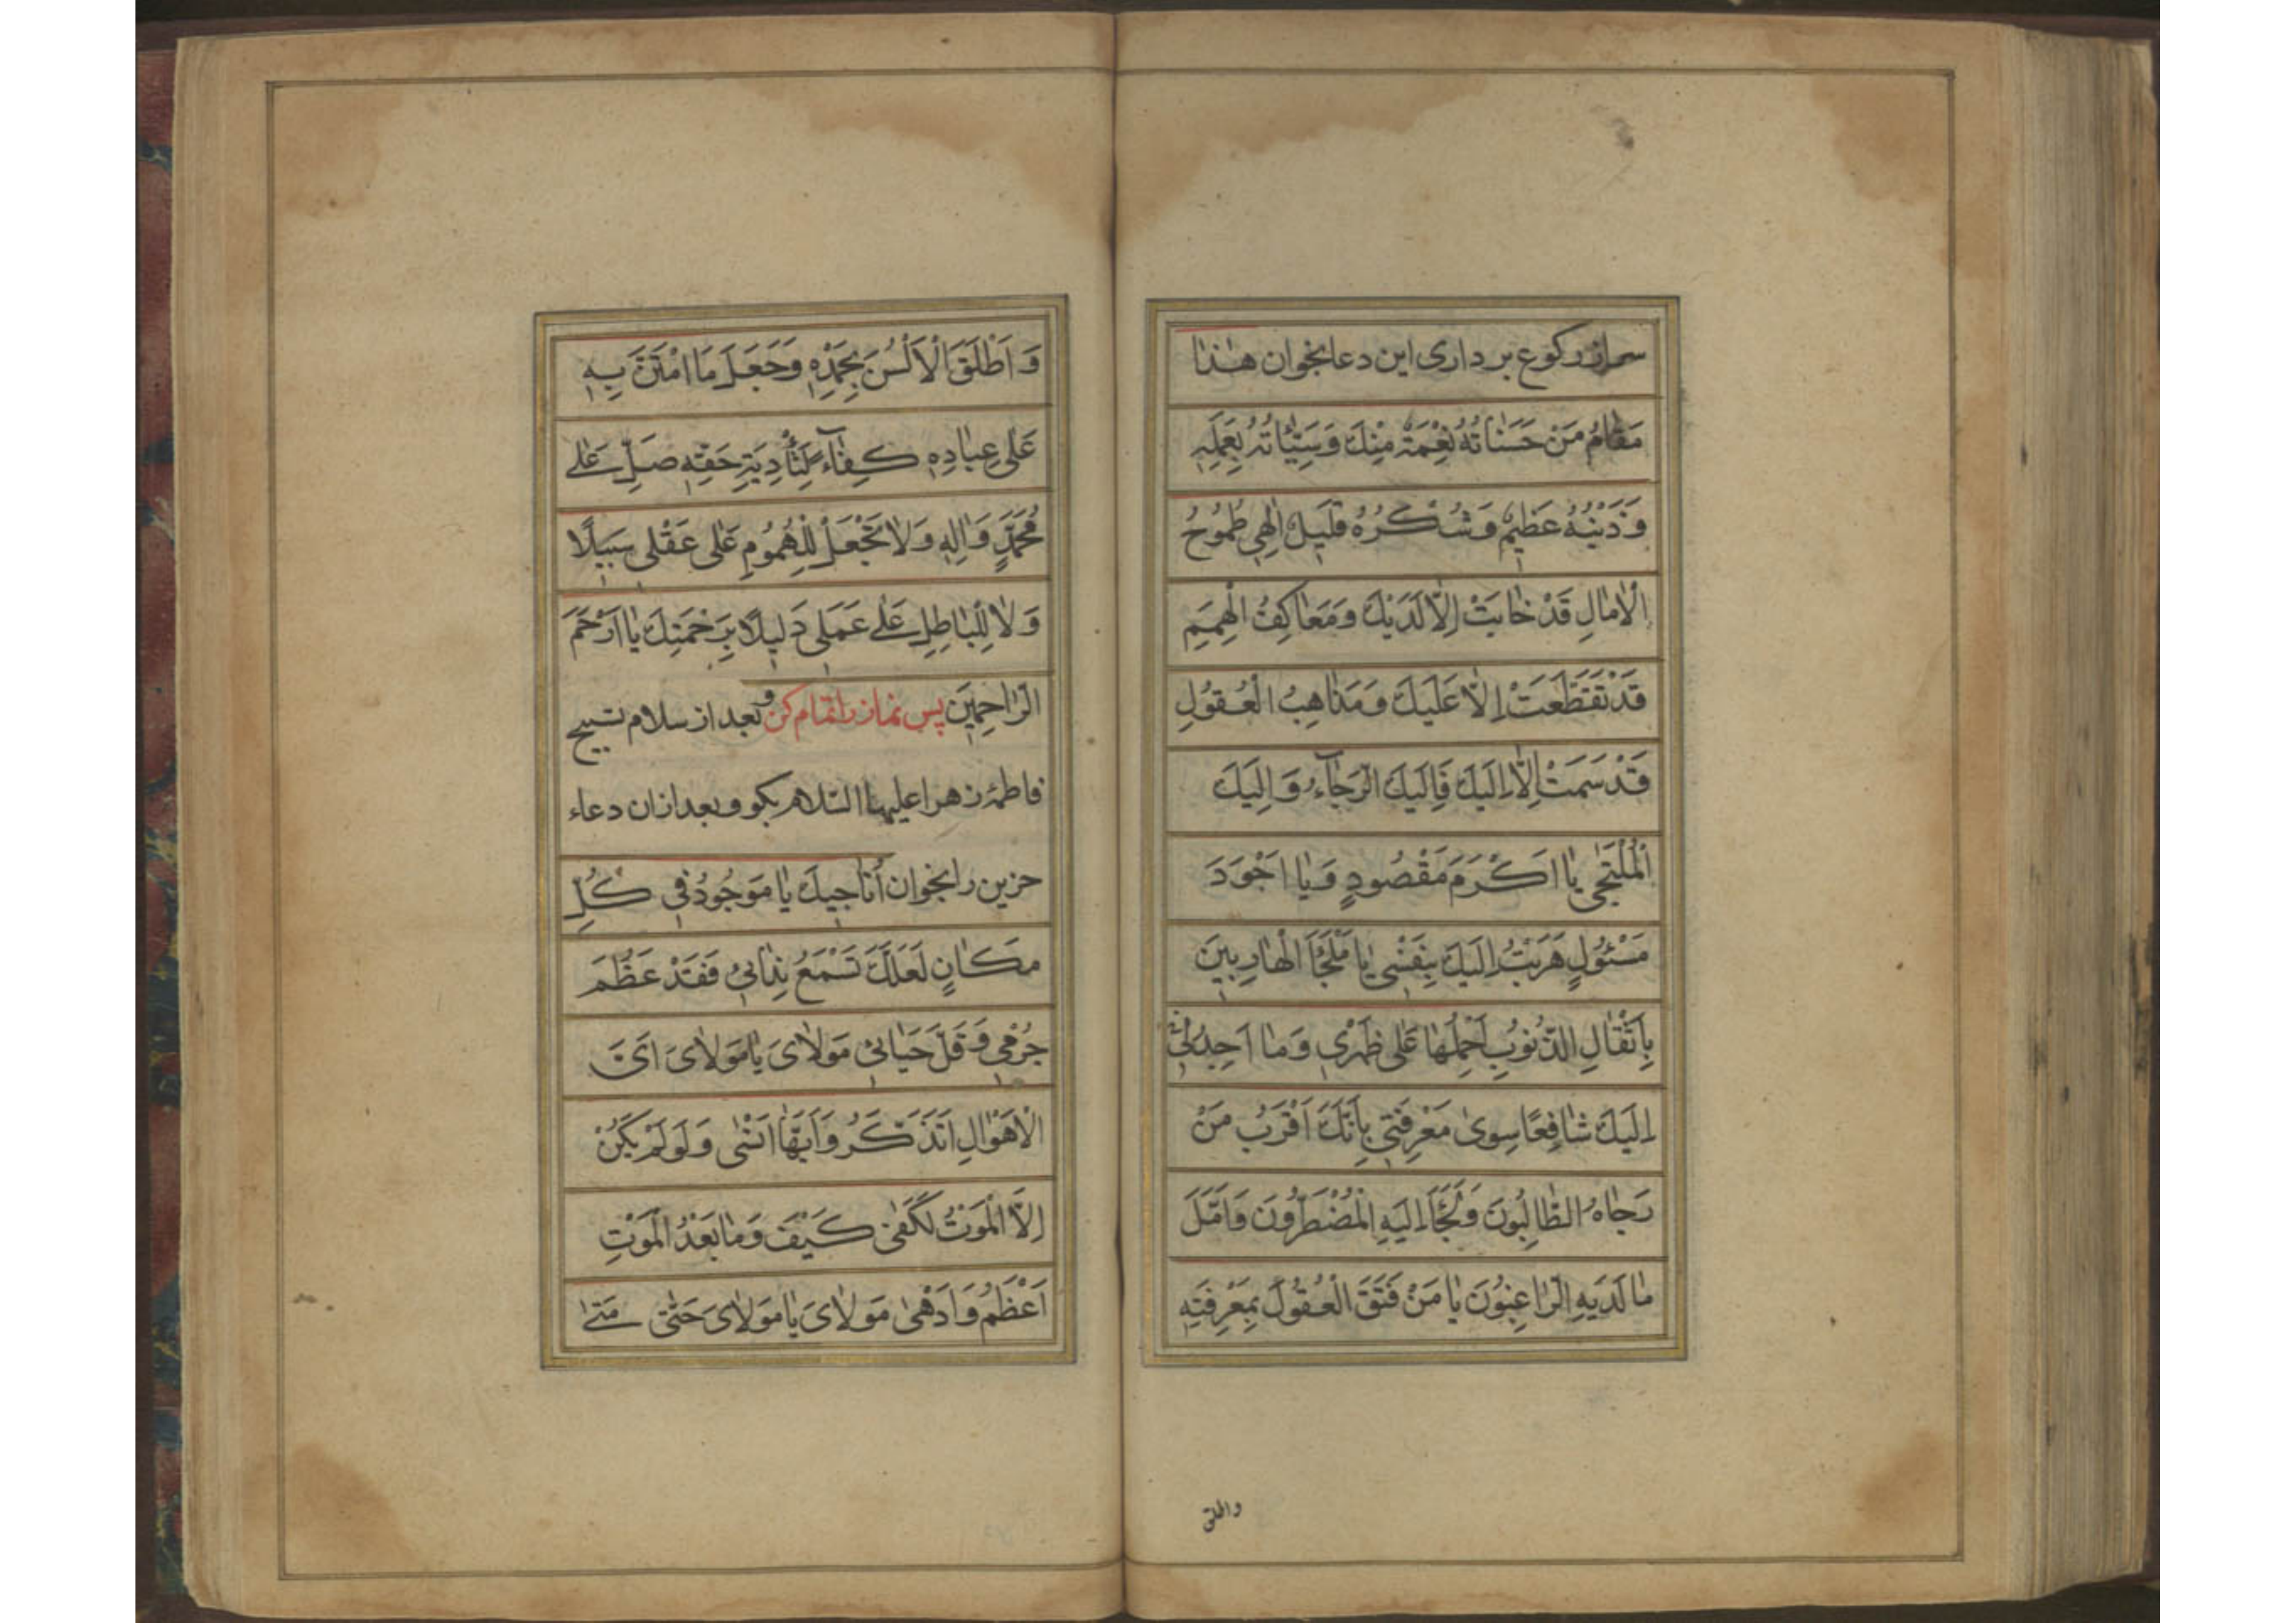 سر از رکوع برداری این دعا بخوان هٰذٰا
مَقٰامُ مَنْ حَسَنٰاتُهُ نِعْمَةٌ مِنْكَ وَسَيِّئٰاتُهُ بِعَمَلِهِ
وَذَنْبُهُ عَظِيمٌ وَشُكْرُهُ قَلِيلٌ اِلٰهِي طُمُوحُ
الْاٰمٰالِ قَدْ خٰابَتْ اِلّٰا لَدَيْكَ وَمَعٰاكِفُ الْهِمَمِ
قَدْ تَقَطَّعَتْ اِلّٰا عَلَيْكَ وَمَذٰاهِبُ الْعُقُولِ
قَدْ سَمَتْ اِلّٰا اِلَيْكَ فَاِلَيْكَ الرَّجٰاۤءُ وَاِلَيْكَ
الْمُلْتَجٰى يٰا اَكْرَمَ مَقْصُودٍ وَيٰا اَجْوَدَ
مَسْئُولٍ هَرَبْتُ اِلَيْكَ بِنَفْسِي يٰا مَلْجَأَ الْهٰارِبِينَ
بِاَثْقٰالِ الذُّنُوبِ اَحْمِلُهٰا عَلٰى ظَهْرِي وَمٰا اَجِدُ لِي
اِلَيْكَ شٰافِعًا سِوىٰ مَعْرِفَتِي بِاَنَّكَ اَقْرَبُ مَنْ
رَجٰاهُ الطّٰالِبُونَ وَلَجَأَ اِلَيْهِ الْمُضْطَرُّونَ وَاَمَّلَ
مٰا لَدَيْهِ الرّٰاغِبُونَ يٰا مَنْ فَتَقَ الْعُقُولَ بِمَعْرِفَتِهِ
واطلق
وَاَطْلَقَ الْاَلْسُنَ بِحَمْدِهِ وَجَعَلَ مَا امْتَنَّ بِهِ
عَلٰى عِبٰادِهِ كِفٰاۤءً لِتَأْدِيَةِ حَقِّهِ صَلِّ عَلٰى
مُحَمَّدٍ وَاٰلِهِ وَلٰا تَجْعَلْ لِلْهُمُومِ عَلٰى عَقْلِي سَبِيلًا
وَلٰا لِلْبٰاطِلِ عَلٰى عَمَلِي دَلِيلًا بِرَحْمَتِكَ يٰا اَرْحَمَ
الرّٰاحِمِينَ پس نماز را تمام کن و بعد از سلام تسبیح
فاطمهٔ زهرا علیها السّلام بگو و بعد از ان دعاء
حزین را بخوان اُنٰاجِيكَ يٰا مَوْجُودُ فِي كُلِّ
مَكٰانٍ لَعَلَّكَ تَسْمَعُ نِدٰائِي فَقَدْ عَظُمَ
جُرْمِي وَقَلَّ حَيٰائِي مَوْلٰاىَ يٰا مَوْلٰاىَ اَىَّ
الْاَهْوٰالِ اَتَذَكَّرُ وَاَيَّهٰا اَنْسٰى وَلَوْ لَمْ يَكُنْ
اِلَّا الْمَوْتُ لَكَفٰى كَيْفَ وَمٰا بَعْدَ الْمَوْتِ
اَعْظَمُ وَاَدْهٰى مَوْلٰاىَ يٰا مَوْلٰاىَ حَتّٰى مَتٰى